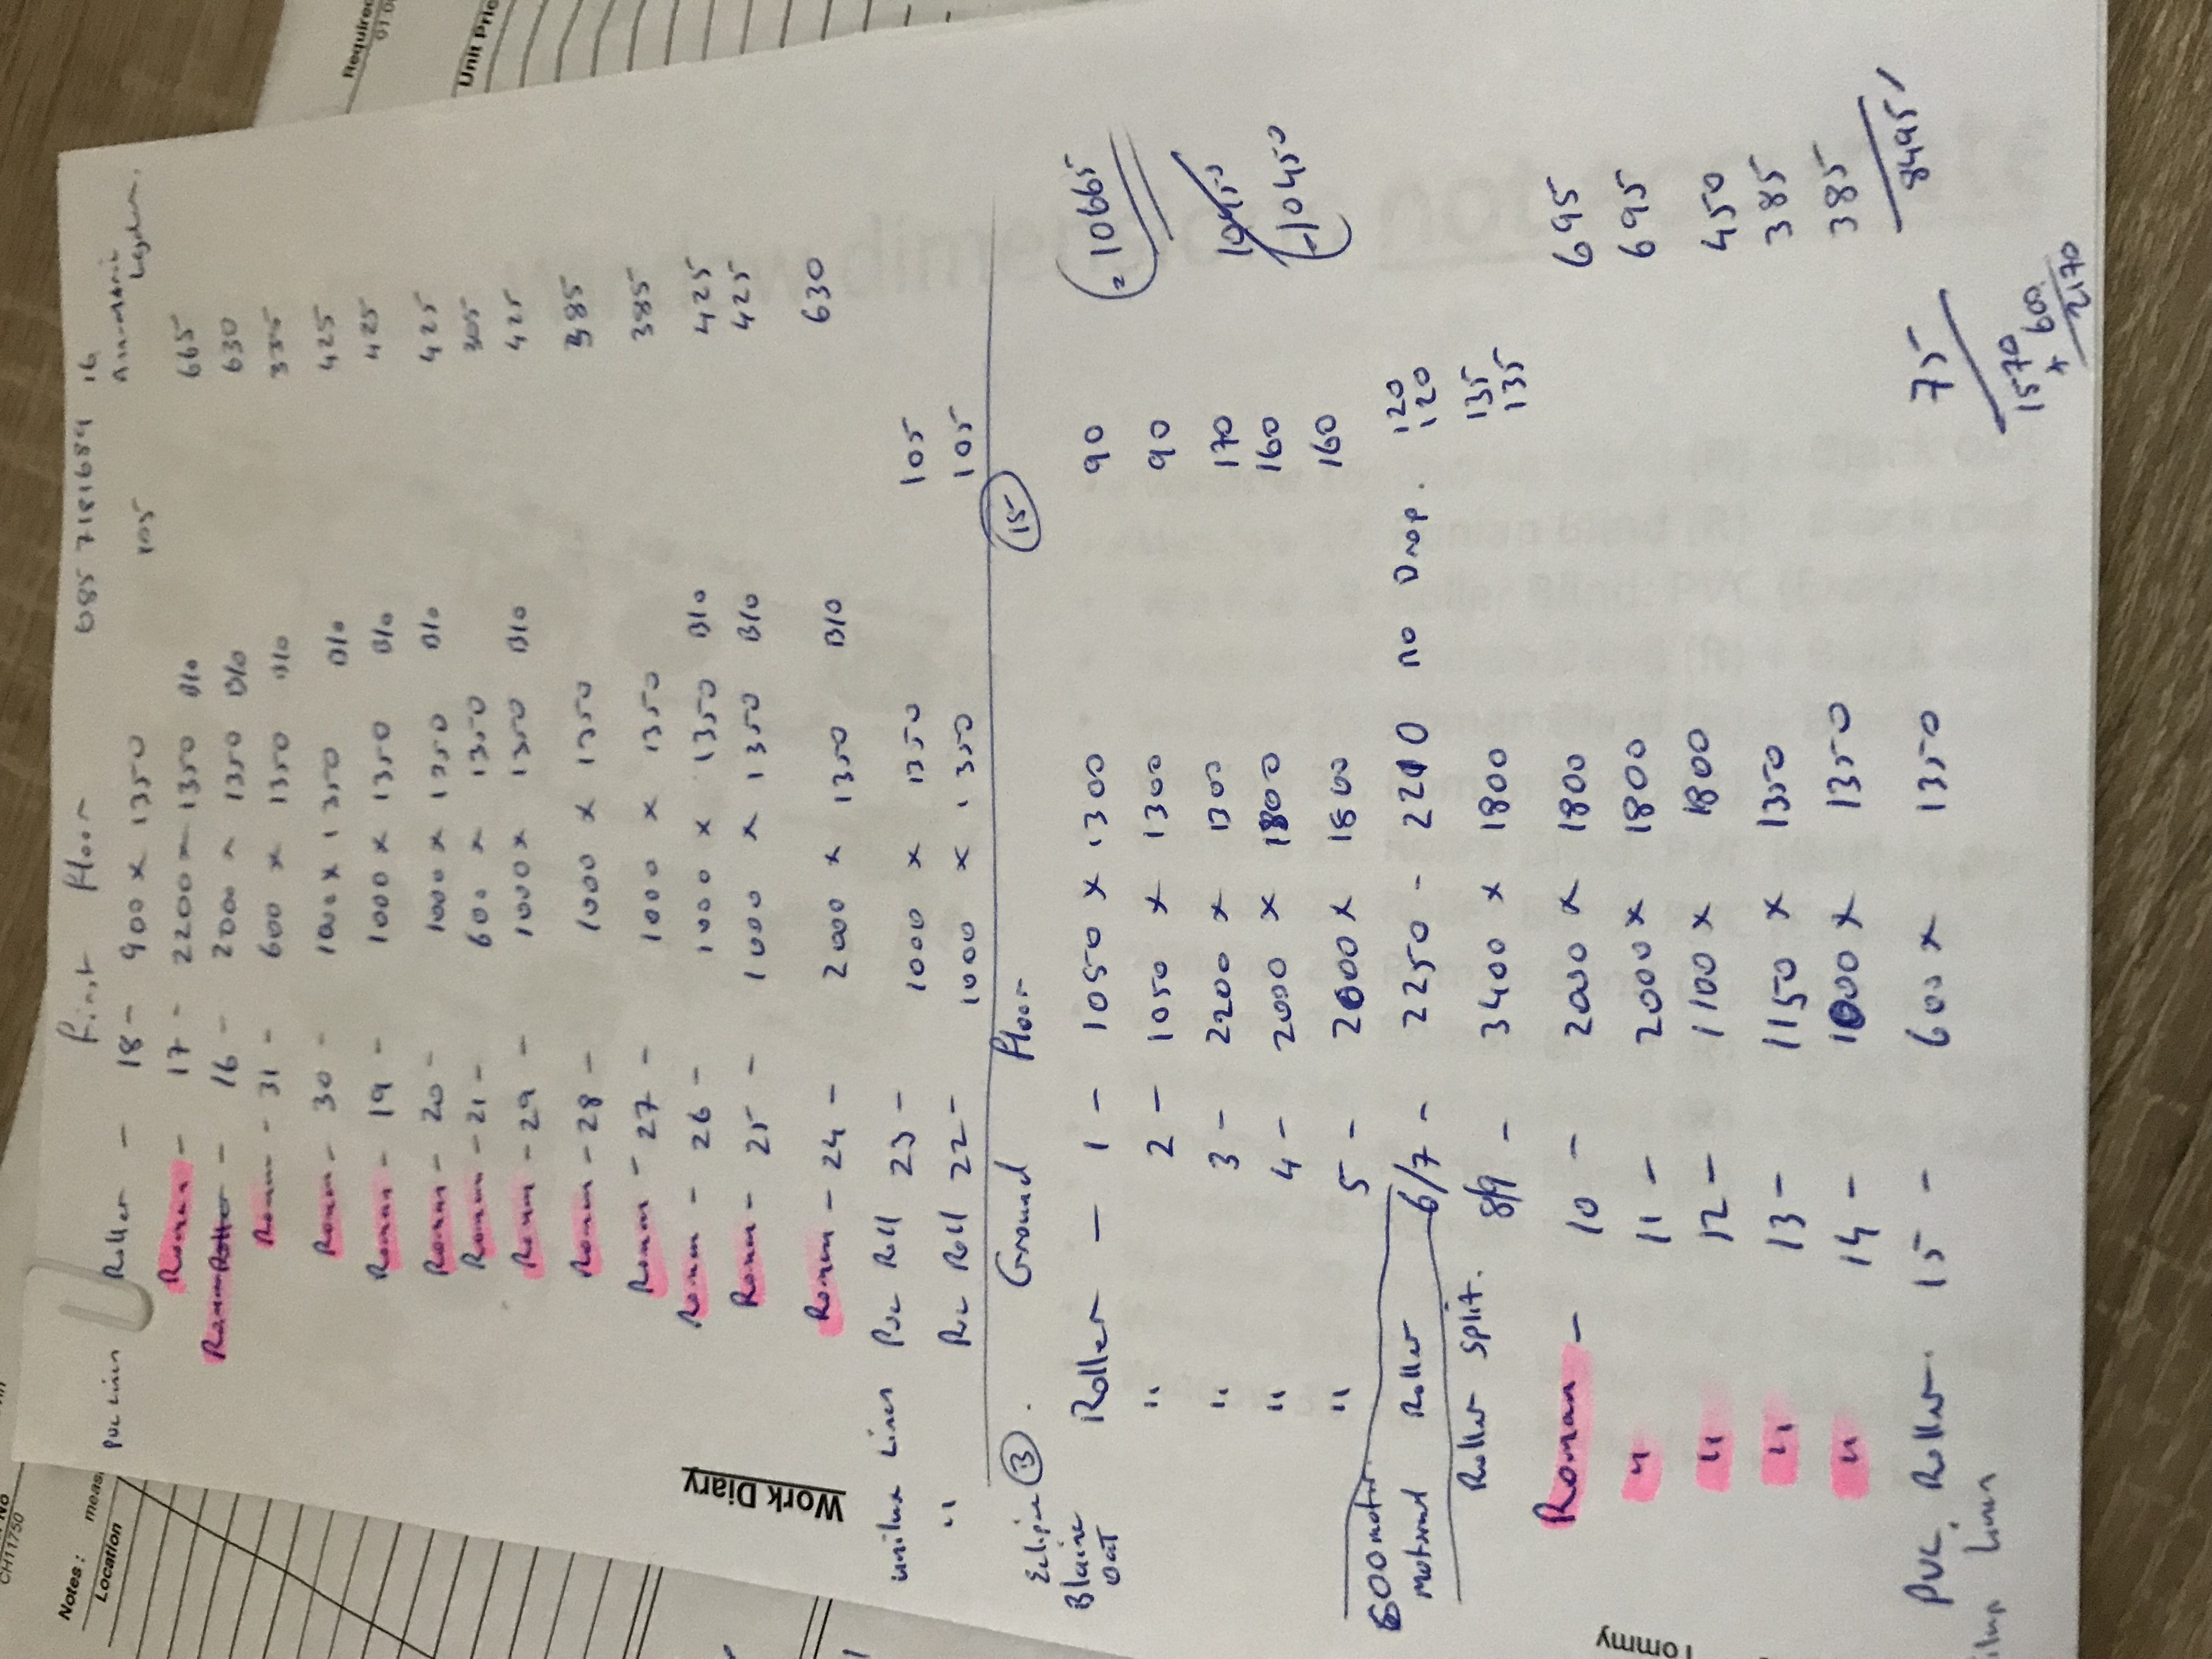 First Floor 085 7181684 16
PVC Linen Roller - 18 - 900 x 1350 105
Roman - 17 - 2200 x 1350 B/o 665
Roman Roller - 16 - 2000 x 1350 B/o 630
Roman - 31 - 600 x 1350 B/o 335
Roman - 30 - 1000 x 1350 B/o 425
Roman - 19 - 1000 x 1350 B/o 425
Roman - 20 - 1000 x 1350 B/o 425
Roman - 21 - 600 x 1350 305
Roman - 29 - 1000 x 1350 B/o 425
Roman - 28 - 1000 x 1350 385
Roman - 27 - 1000 x 1350 385
Roman - 26 - 1000 x 1350 B/o 425
Roman - 25 - 1000 x 1350 B/o 425
Roman - 24 - 2000 x 1350 B/o 630
unilux Linen PVC Roll 23 - 1000 x 1350 105
" PVC Roll 22 - 1000 x 1350 105
Eclipse 3. Ground Floor 15
Roller - 1 - 1050 x 1300 90 = 10665
" 2 - 1050 x 1300 90
" 3 - 2200 x 1300 170 10450
" 4 - 2000 x 1800 160 - 10450
" 5 - 2000 x 1800 160
600 motor.
motorised Roller 6/7 - 2250 - 2210 no Drop. 120
120
Roller split. 8/9 - 3400 x 1800 135
135
Roman - 10 - 2000 x 1800 695
" 11 - 2000 x 1800 695
" 12 - 1100 x 1800 450
" 13 - 1150 x 1350 385
" 14 - 1000 x 1350 385
PVC Roller. 15 - 600 x 1350 75 8495
Linen
1570
+ 600
2170
Work Diary
Tommy
Notes: meas
Location
CH11750
Required
Unit Pric